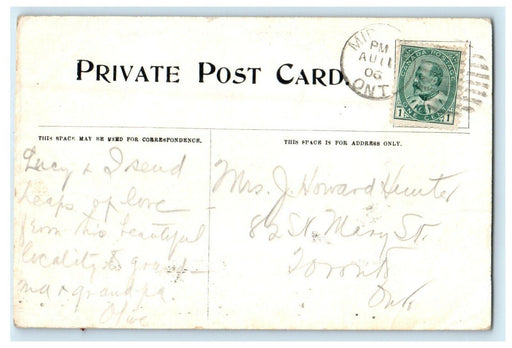 PM
AU 11
06
ONT
CANADA POSTAGE
1 ONE CENT 1
PRIVATE POST CARD.
THIS SPACE MAY BE USED FOR CORRESPONDENCE.
THIS SPACE IS FOR ADDRESS ONLY.
Lucy & I send
heaps of love
from this beautiful
locality to grand-
ma & grand-pa.
Olive
Mrs. J. Howard Hunter
82 St. Mary St.
Toronto
Ont.